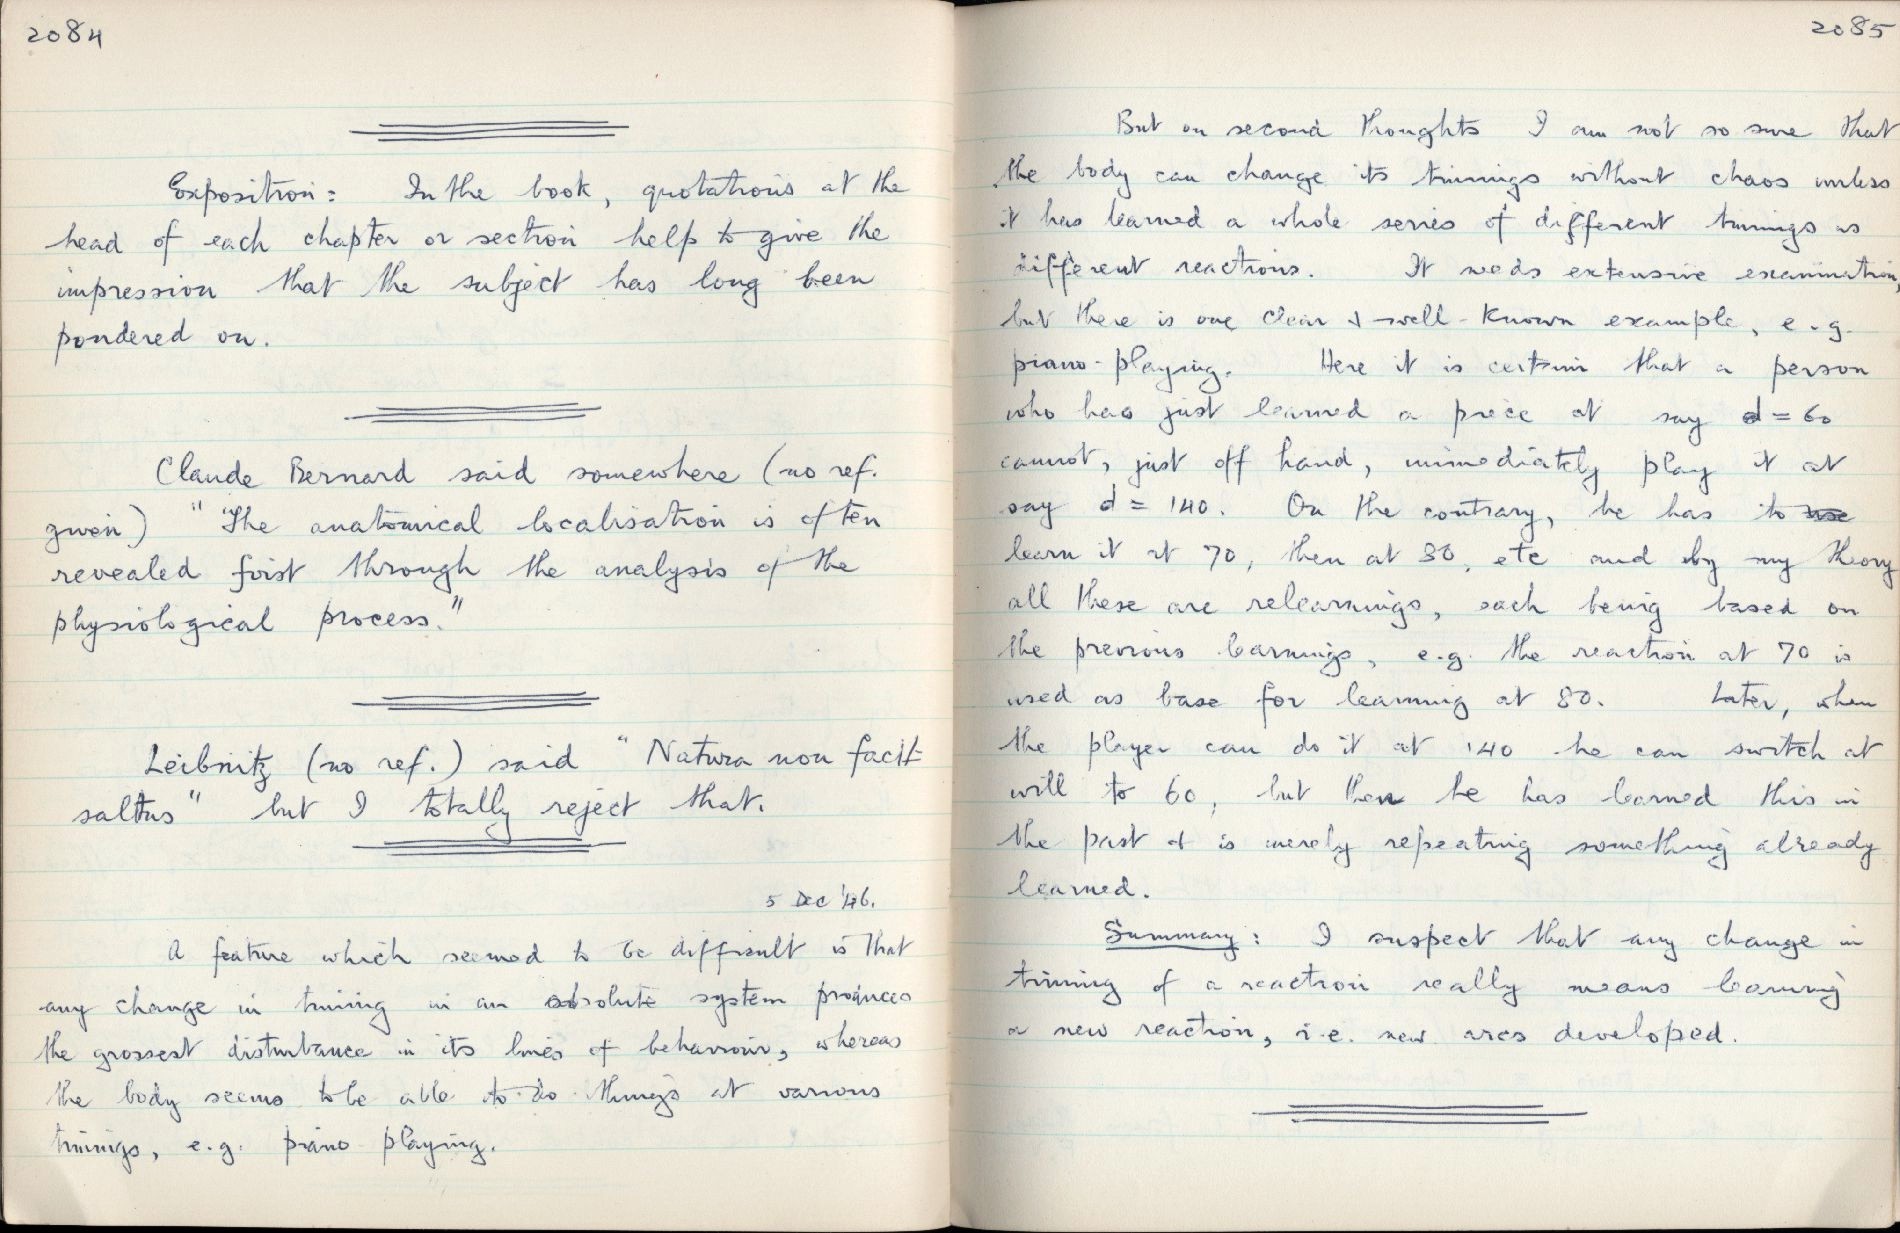 2084
Exposition: In the book, quotations at the
head of each chapter or section help to give the
impression that the subject has long been
pondered on.
Claude Bernard said somewhere (no ref.
given) " "The anatomical localisation is often
revealed first through the analysis of the
physiological process."
Leibnitz (no ref.) said "Natura non facit
saltus" but I totally reject that.
5 Dec '46.
A feature which seemed to be difficult is that
any change in timing in an absolute system produces
the grossest disturbance in its lines of behaviour, whereas
the body seems to be able to do things at various
timings, e.g. piano playing.
2085
But on second thoughts I am not so sure that
the body can change its timings without chaos unless
it has learned a whole series of different timings as
different reactions. It needs extensive examination,
but there is one clear & well-known example, e.g.
piano-playing. Here it is certain that a person
who has just learned a piece at say d = 60
cannot, just off hand, immediately play it at
say d = 140. On the contrary, he has to use
learn it at 70, then at 80, etc and by my theory
all these are relearnings, each being based on
the previous learnings, e.g. the reaction at 70 is
used as base for learning at 80. Later, when
the player can do it at 140 he can switch at
will to 60, but then he has learned this in
the past & is merely repeating something already
learned.
Summary: I suspect that any change in
timing of a reaction really means learning
a new reaction, i.e. new arcs developed.